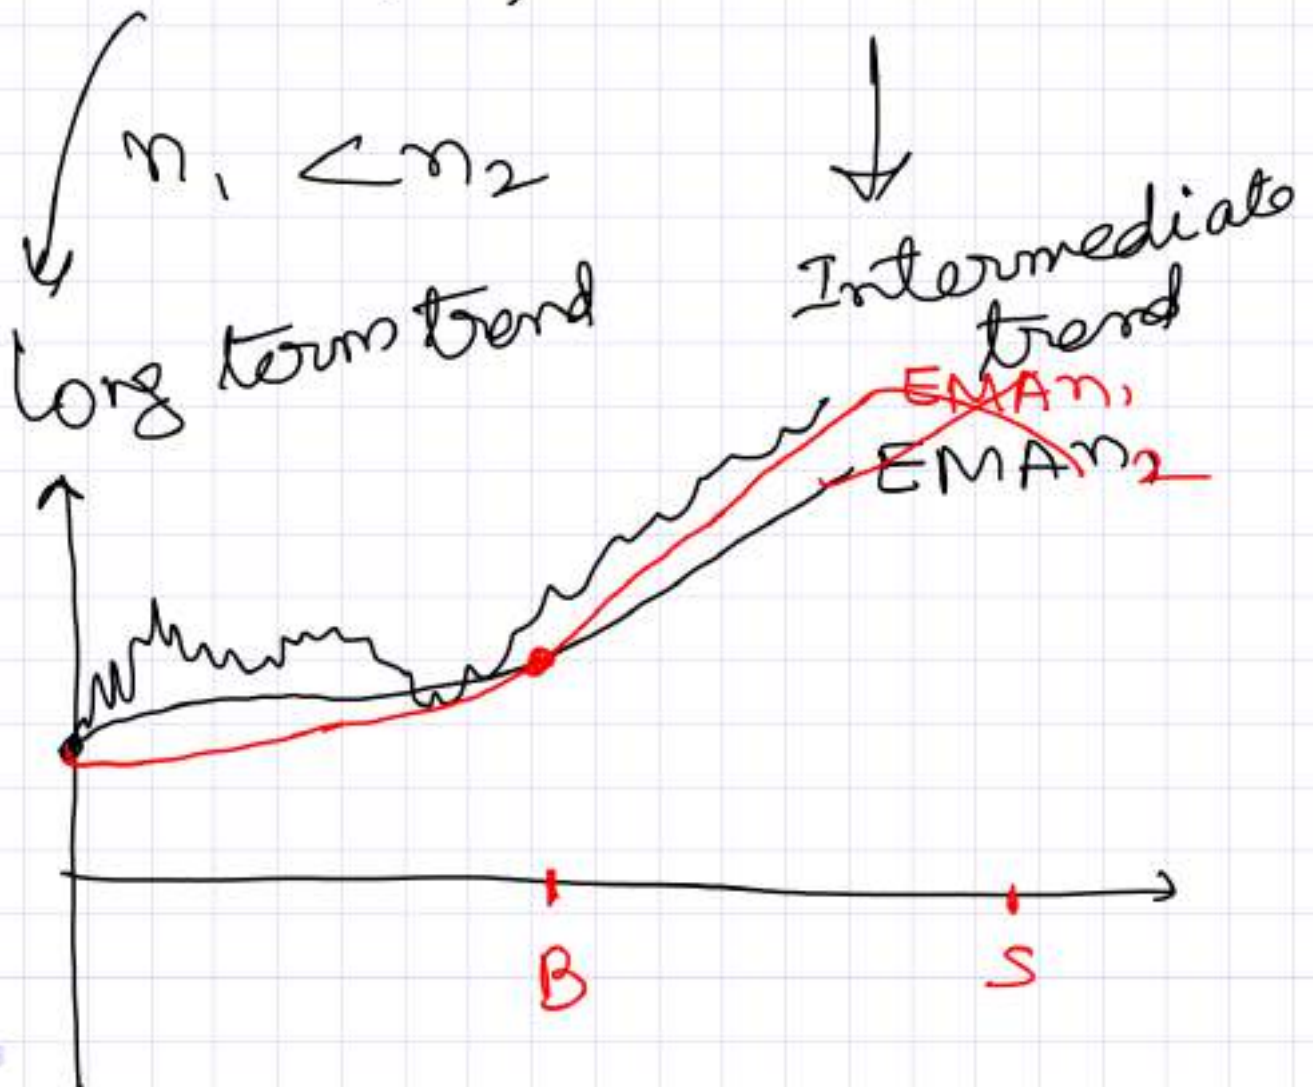 n₁ < n₂
Long term trend
Intermediate
trend
EMA n₁
EMA n₂
B
S